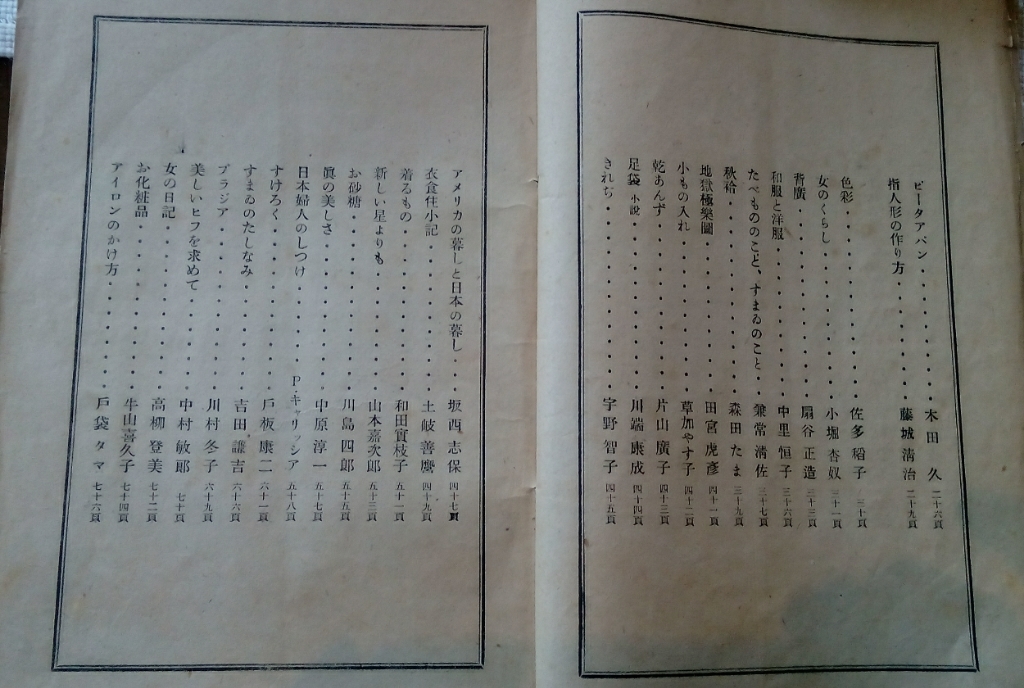 ピータアパン・・・・・・・木田 久 二十六頁
指人形の作り方・・・・・・・藤城清治 二十九頁
色彩・・・・・・・・・・・佐多稻子 三十頁
女のくらし・・・・・・・・・小堀杏奴 三十一頁
背廣・・・・・・・・・・・扇谷正造 三十三頁
和服と洋服・・・・・・・・・中里恒子 三十六頁
たべもののこと、すまゐのこと・・兼常清佐 三十七頁
秋袷・・・・・・・・・・・森田たま 三十九頁
地獄極樂圖・・・・・・・・・田宮虎彥 四十一頁
小もの入れ・・・・・・・・・草加やす子 四十二頁
乾あんず・・・・・・・・・・片山廣子 四十三頁
足袋 小説・・・・・・・・・川端康成 四十四頁
きれぢ・・・・・・・・・・・宇野智子 四十五頁
アメリカの暮しと日本の暮し・・・坂西志保 四十七頁
衣食住小記・・・・・・・・・土岐善麿 四十九頁
着るもの・・・・・・・・・・和田實枝子 五十一頁
新しい星よりも・・・・・・・・山本嘉次郎 五十三頁
お砂糖・・・・・・・・・・・川島四郎 五十五頁
眞の美しさ・・・・・・・・・中原淳一 五十七頁
日本婦人のしつけ・・・・P・キャリッシア 五十八頁
すけろく・・・・・・・・・・戶板康二 六十一頁
すまゐのたしなみ・・・・・・・吉田謙吉 六十六頁
ブラジア・・・・・・・・・・川村冬子 六十九頁
美しいヒフを求めて・・・・・・中村敏郎 七十頁
女の日記・・・・・・・・・・高柳登美 七十二頁
お化粧品・・・・・・・・・・牛山喜久子 七十四頁
アイロンのかけ方・・・・・・・戶袋タマ 七十六頁